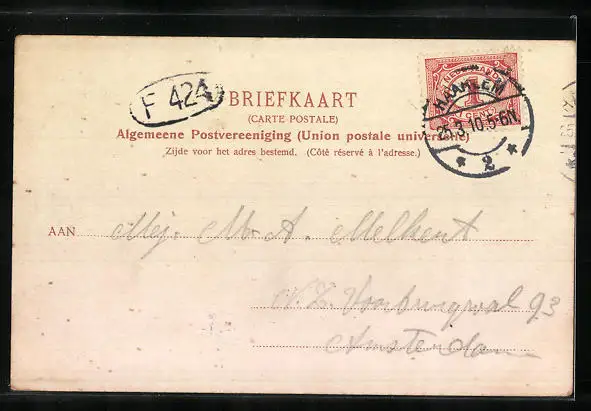 F 424
BRIEFKAART
(CARTE POSTALE)
Algemeene Postvereeniging (Union postale universelle)
Zijde voor het adres bestemd. (Côté réservé à l'adresse.)
NEDERLAND
1
CENT
HAARLEM
25.3.10.5-6N
* 2 *
AAN Mej. M. A. Melkent
N. Z. Voorburgwal 93
Amsterdam